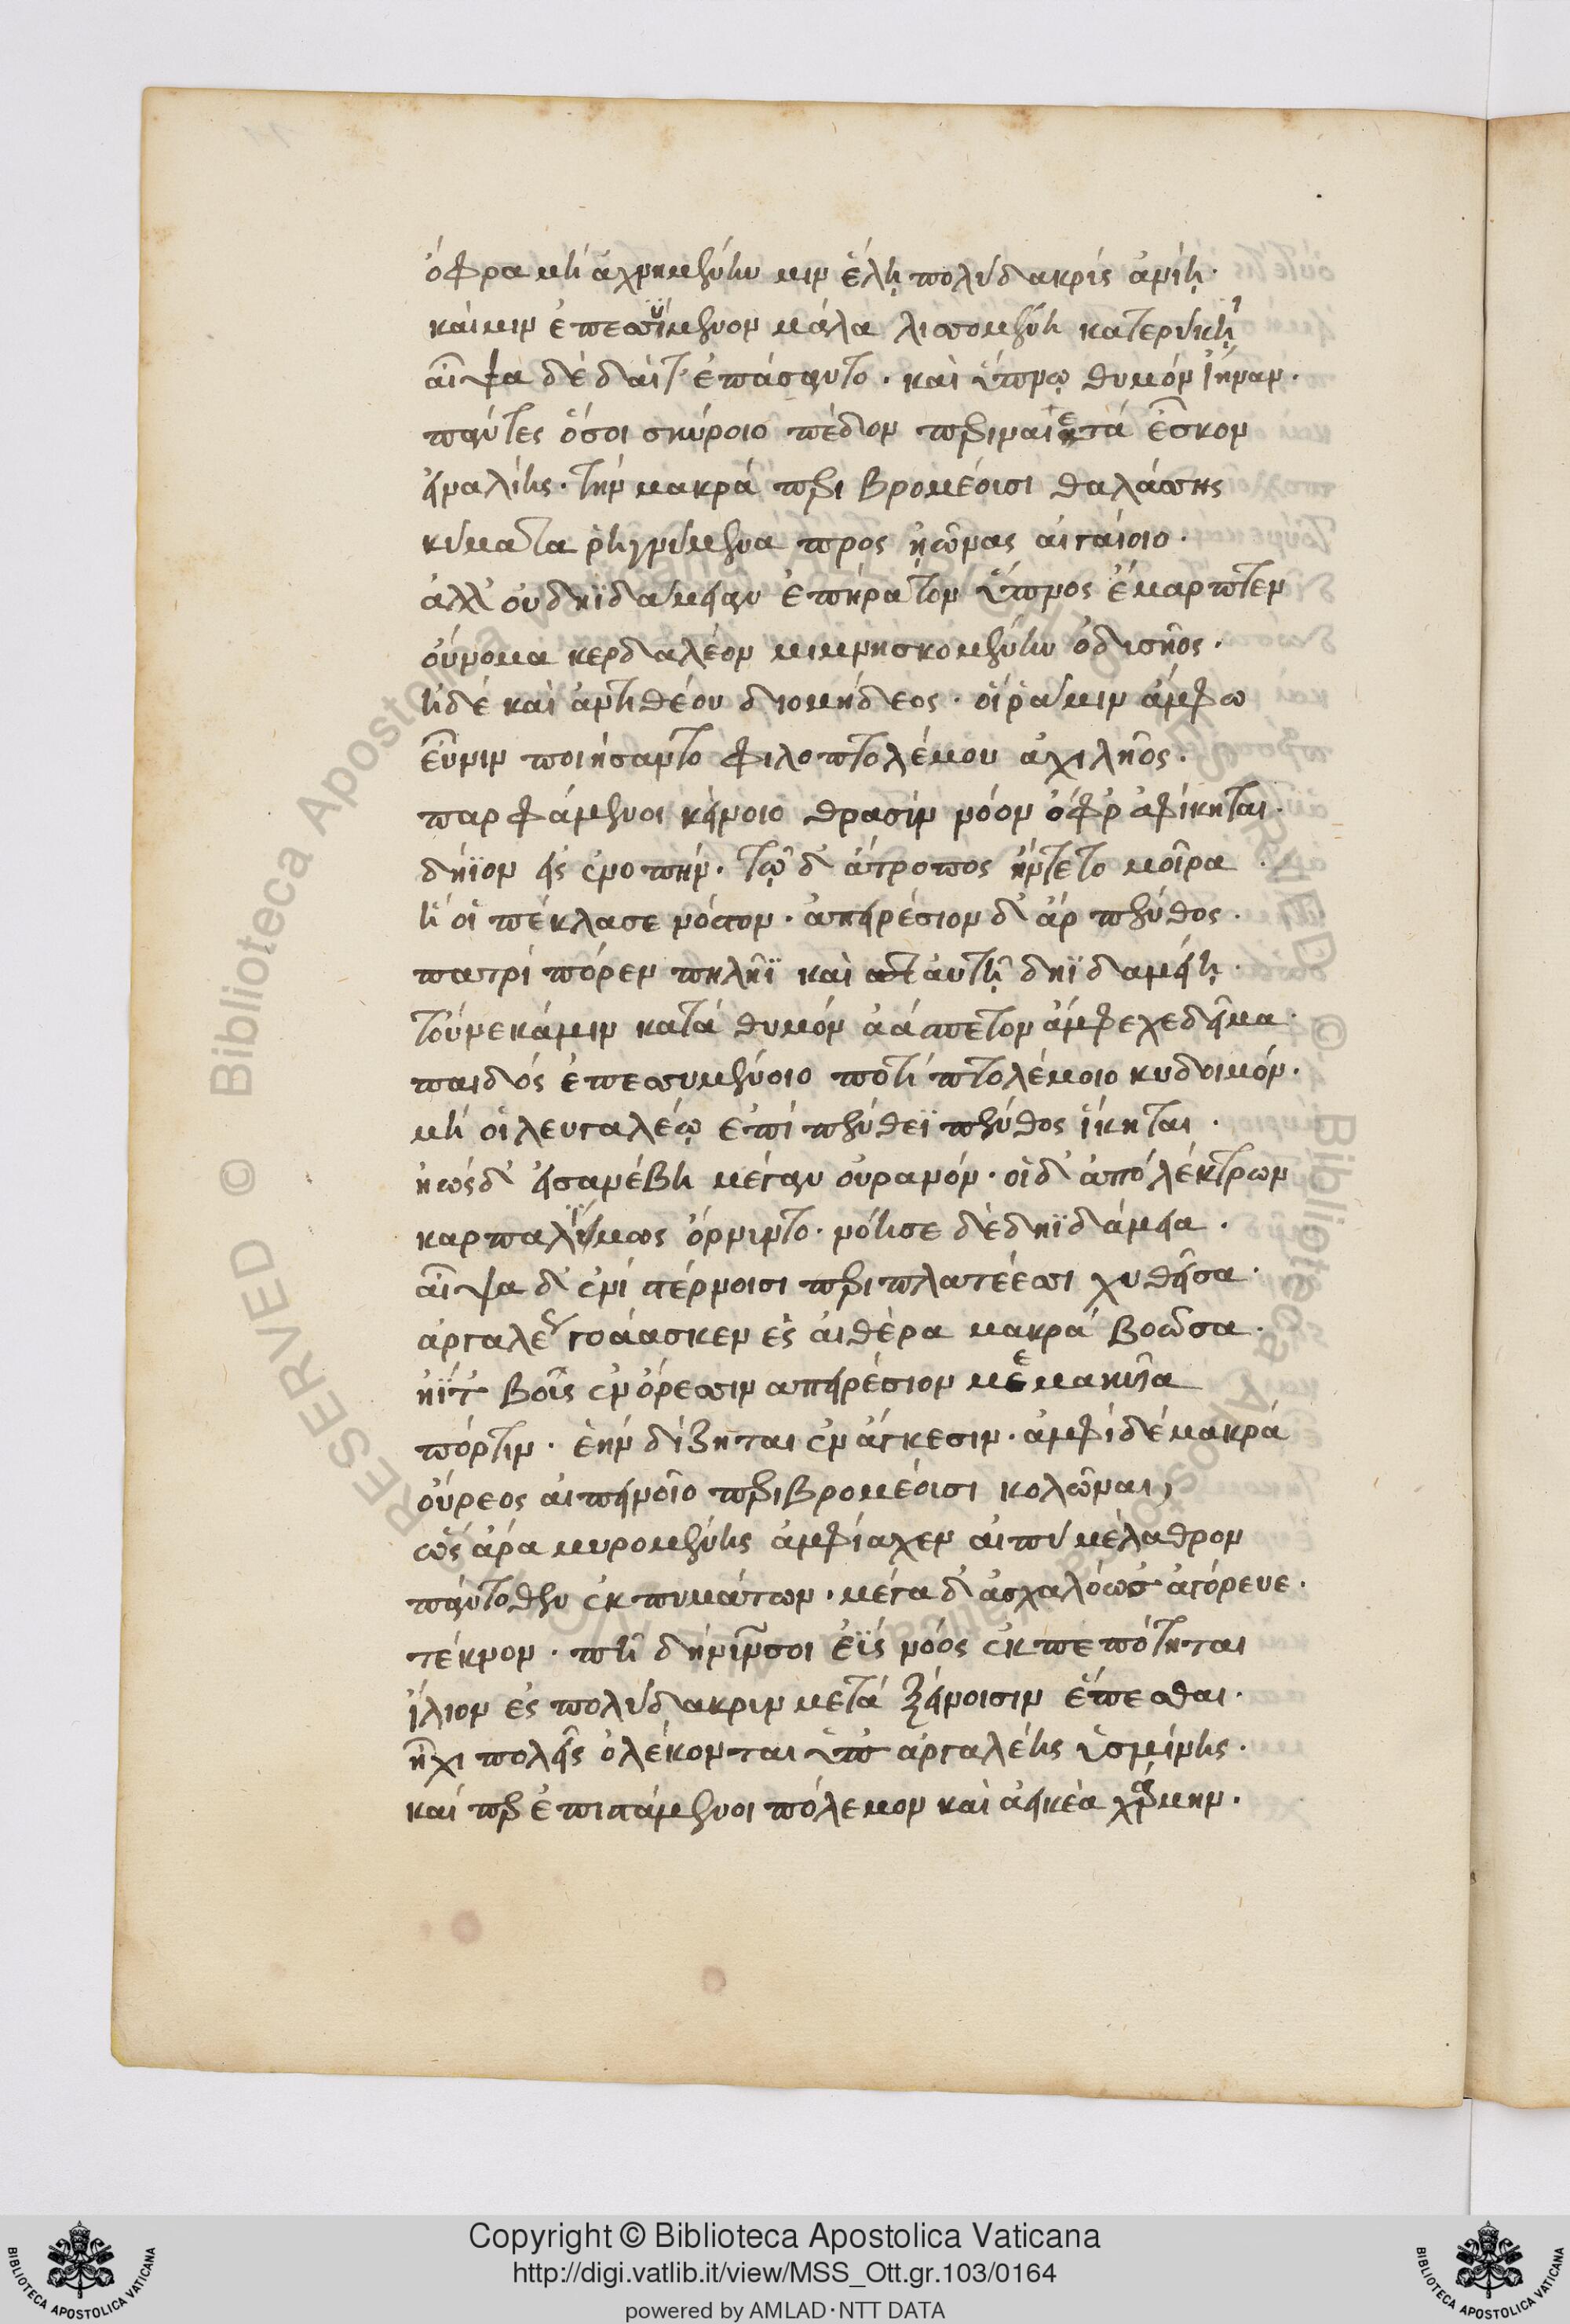 ὄφρα μὴ ἀχνημένην μιν ἕλῃ πολύδακρις ἀνίη·
καί μιν ἐπεσσύμενον μάλα λισσομένη κατερύκῃ
αἶψα δὲ δαῖτ' ἐπάσαντο· καὶ ὕπνῳ θυμὸν ἴηναν·
πάντες ὅσοι σκύροιο πέδον περιναιετάεσκον
εἰναλίης· τὴν μακρὰ περιβρομέουσι θαλάσσης
κύματα ῥηγνύμενα πρὸς ἠϊόνας αἰγαίοιο·
ἀλλ' οὐ δηϊδάμειαν ἐπήρατον ὕπνος ἔμαρπτεν
οὔνομα κερδαλέον μιμνησκομένην ὀδυσῆος·
ἠδὲ καὶ ἀντιθέου διομήδεος· οἵ ῥά μιν ἄμφω
εὖνιν ποιήσαντο φιλοπτολέμου ἀχιλῆος·
παρφάμενοι κείνοιο θρασὺν νόον ὄφρ' ἀφίκηται·
δήϊον εἰς ἐνοπήν· τῷ δ' ἄτροπος ἤντετο μοῖρα
ἥ οἱ πέκλασε νόστον· ἀπειρέσιον δ' ἄρ πένθος·
πατρὶ πόρεν πηλῆϊ καὶ αὐτῇ δηϊδαμείῃ·
τοὔνεκά μιν κατὰ θυμὸν ἀάσπετον ἄμφεχε δεῖμα·
παιδὸς ἐπεσσυμένοιο ποτὶ πτολέμοιο κυδοιμόν·
μή οἱ λευγαλέῳ ἐπὶ πένθεϊ πένθος ἵκηται·
ἠὼς δ' εἰσανέβη μέγαν οὐρανόν· οἱ δ' ἀπὸ λέκτρων
καρπαλίμως ὄρνυντο· νόησε δὲ δηϊδάμεια·
αἶψα δ' ἐνὶ στέρνοισι περιπλατέεσσι χυθεῖσα·
ἀργαλέως γοάασκεν ἐς αἰθέρα μακρὰ βοῶσα·
ἠΰτε βοῦς ἐν ὄρεσσιν ἀπειρέσιον μεμακυῖα
πόρτιν· ἑὴν δίζηται ἐν ἄγκεσιν· ἀμφὶ δὲ μακρὰ
οὔρεος αἰπεινοῖο περιβρομέουσι κολῶναι,
ὣς ἄρα μυρομένης ἀμφίαχεν αἰπὺ μέλαθρον
πάντοθεν ἐκ πυμάτων· μέγα δ' ἀσχαλόωσ' ἀγόρευε·
τέκνον· πῆ δή νῦν σοι ἐῢς νόος ἐκπεπότηται
ἴλιον ἐς πολύδακρυν μετὰ ξείνοισιν ἕπεσθαι·
ἧχι πολεῖς ὀλέκονται ὑπ' ἀργαλέης ὑσμίνης·
καί περ ἐπιστάμενοι πόλεμον καὶ ἀεικέα χάρμην·
Copyright © Biblioteca Apostolica Vaticana
http://digi.vatlib.it/view/MSS_Ott.gr.103/0164
powered by AMLAD·NTT DATA